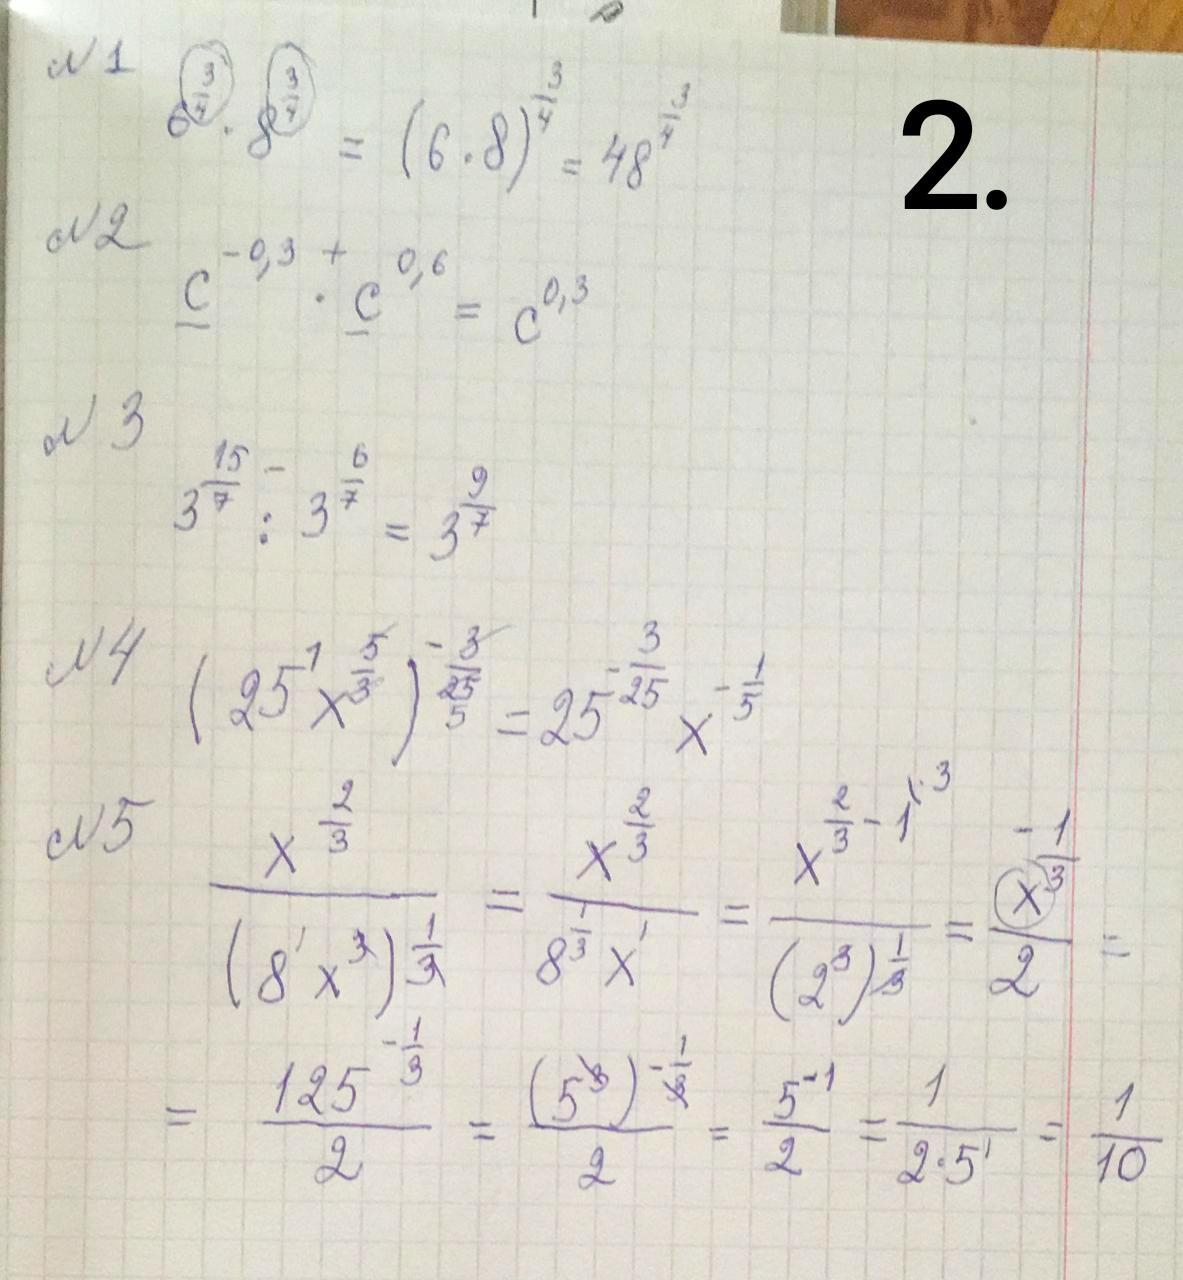 2.
№1
6^(3/4) · 8^(3/4) = (6·8)^(3/4) = 48^(3/4)
№2
c^(-0,3) + · c^(0,6) = c^(0,3)
№3
3^(15/7) - : 3^(6/7) = 3^(9/7)
№4
(25^1 x^(5/3))^(-3/25) 5 = 25^(-3/25) x^(-1/5)
№5
x^(2/3) / (8^1 x^3)^(1/3) = x^(2/3) / 8^(1/3) x^1 = x^(2/3 - 1^(·3)) / (2^3)^(1/3) = x^(-1/3) / 2 =
= 125^(-1/3) / 2 = (5^3)^(-1/3) / 2 = 5^(-1) / 2 = 1 / 2·5^1 = 1/10